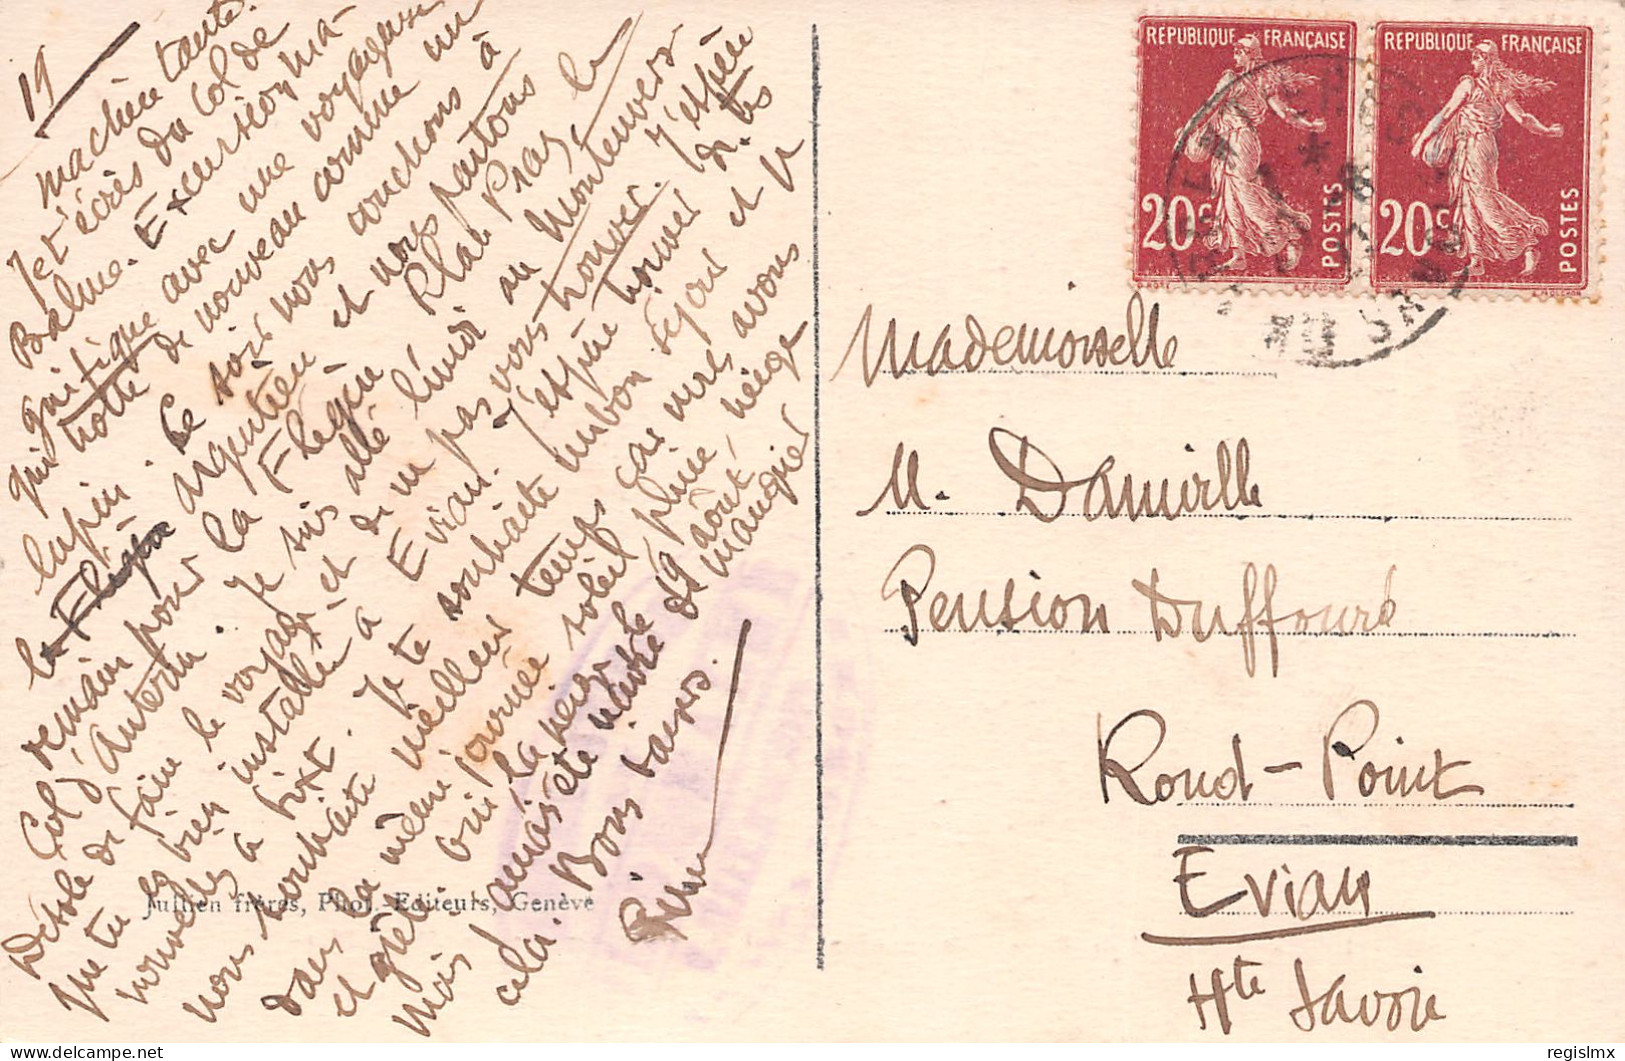 19
Ma chère tante.
Je t'écris du Col de
Balme. Excursion ma-
gnifique avec une voyageuse
qui trotte de nouveau comme un
lapin. Ce soir nous couchons à
la Flégère argentière et nous partons
demain pour la Flégère Plan Praz le
Col d'Anterne. Je suis allé lundi au Montenvers
Désolé de faire le voyage et de ne pas vous trouver. J'espère
que tu es bien installée à Evian. J'espère trouver de tes
nouvelles à Sixt. Je te souhaite un bon séjour et je
nous souhaite meilleur temps car nous avons
dans la même journée soleil pluie neige
et grêle oui la neige le 19 août
Mais jamais été navré manquer
cela. Bons baisers.
Jullien frères, Phot. Editeurs, Genève
REPUBLIQUE FRANÇAISE
20c
POSTES
REPUBLIQUE FRANÇAISE
20c
POSTES
Mademoiselle
M. Damville
Pension Duffouré
Rond-Point
Evian
Hte Savoie
regislmx